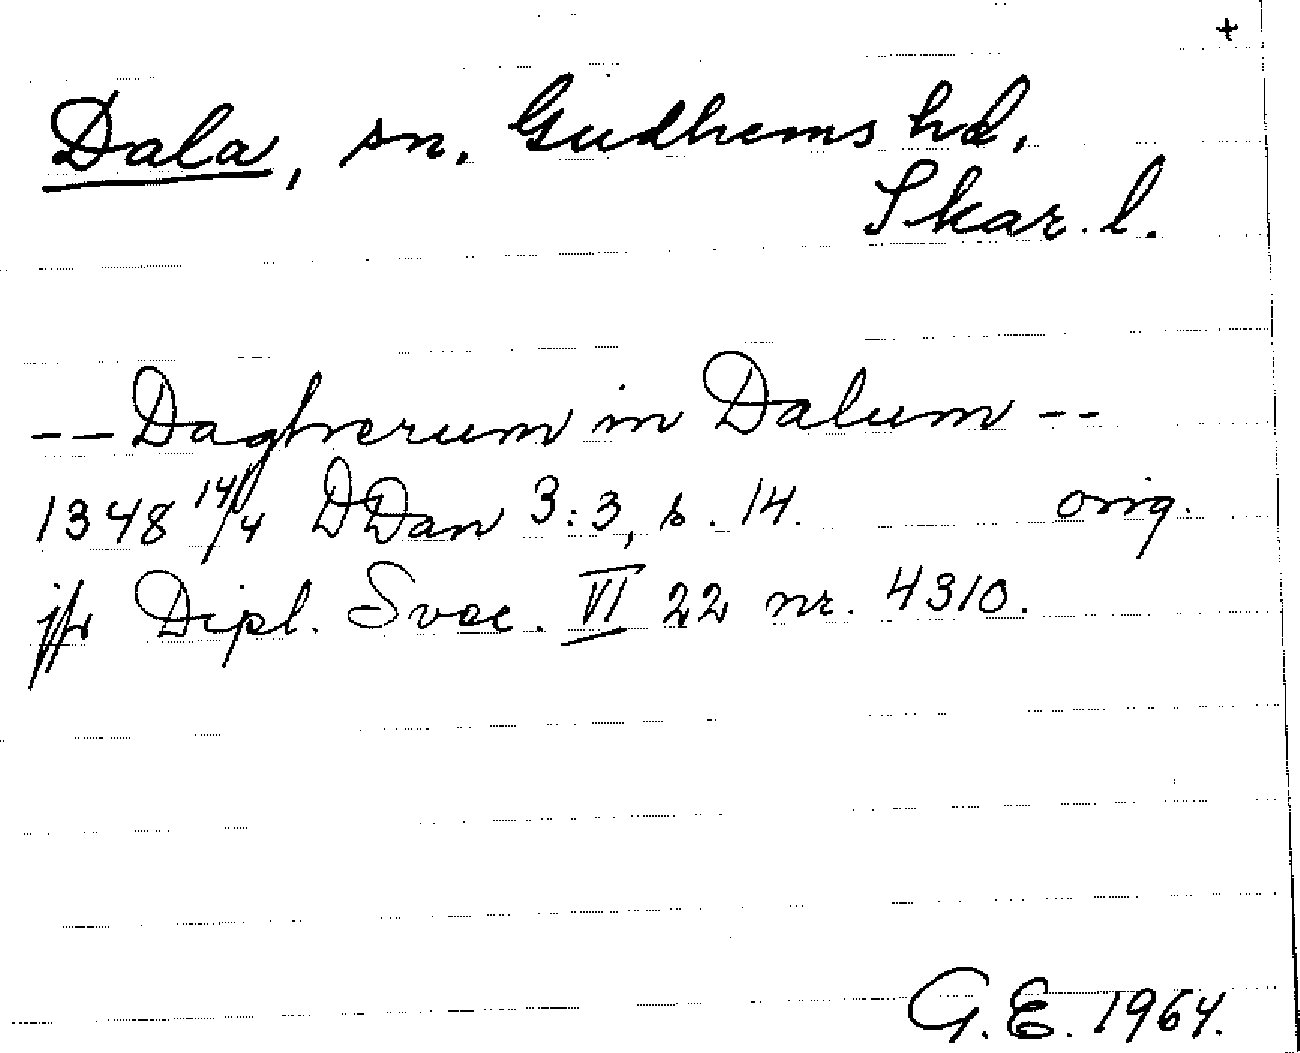 +
Dala, sn. Gudhems hd,
Skar. l.
-- Daghrerum in Dalum --
1348 14/4 DDan 3:3, s. 14. orig.
jfr Dipl. Svec. VI 22 nr. 4310.
G.E. 1964.